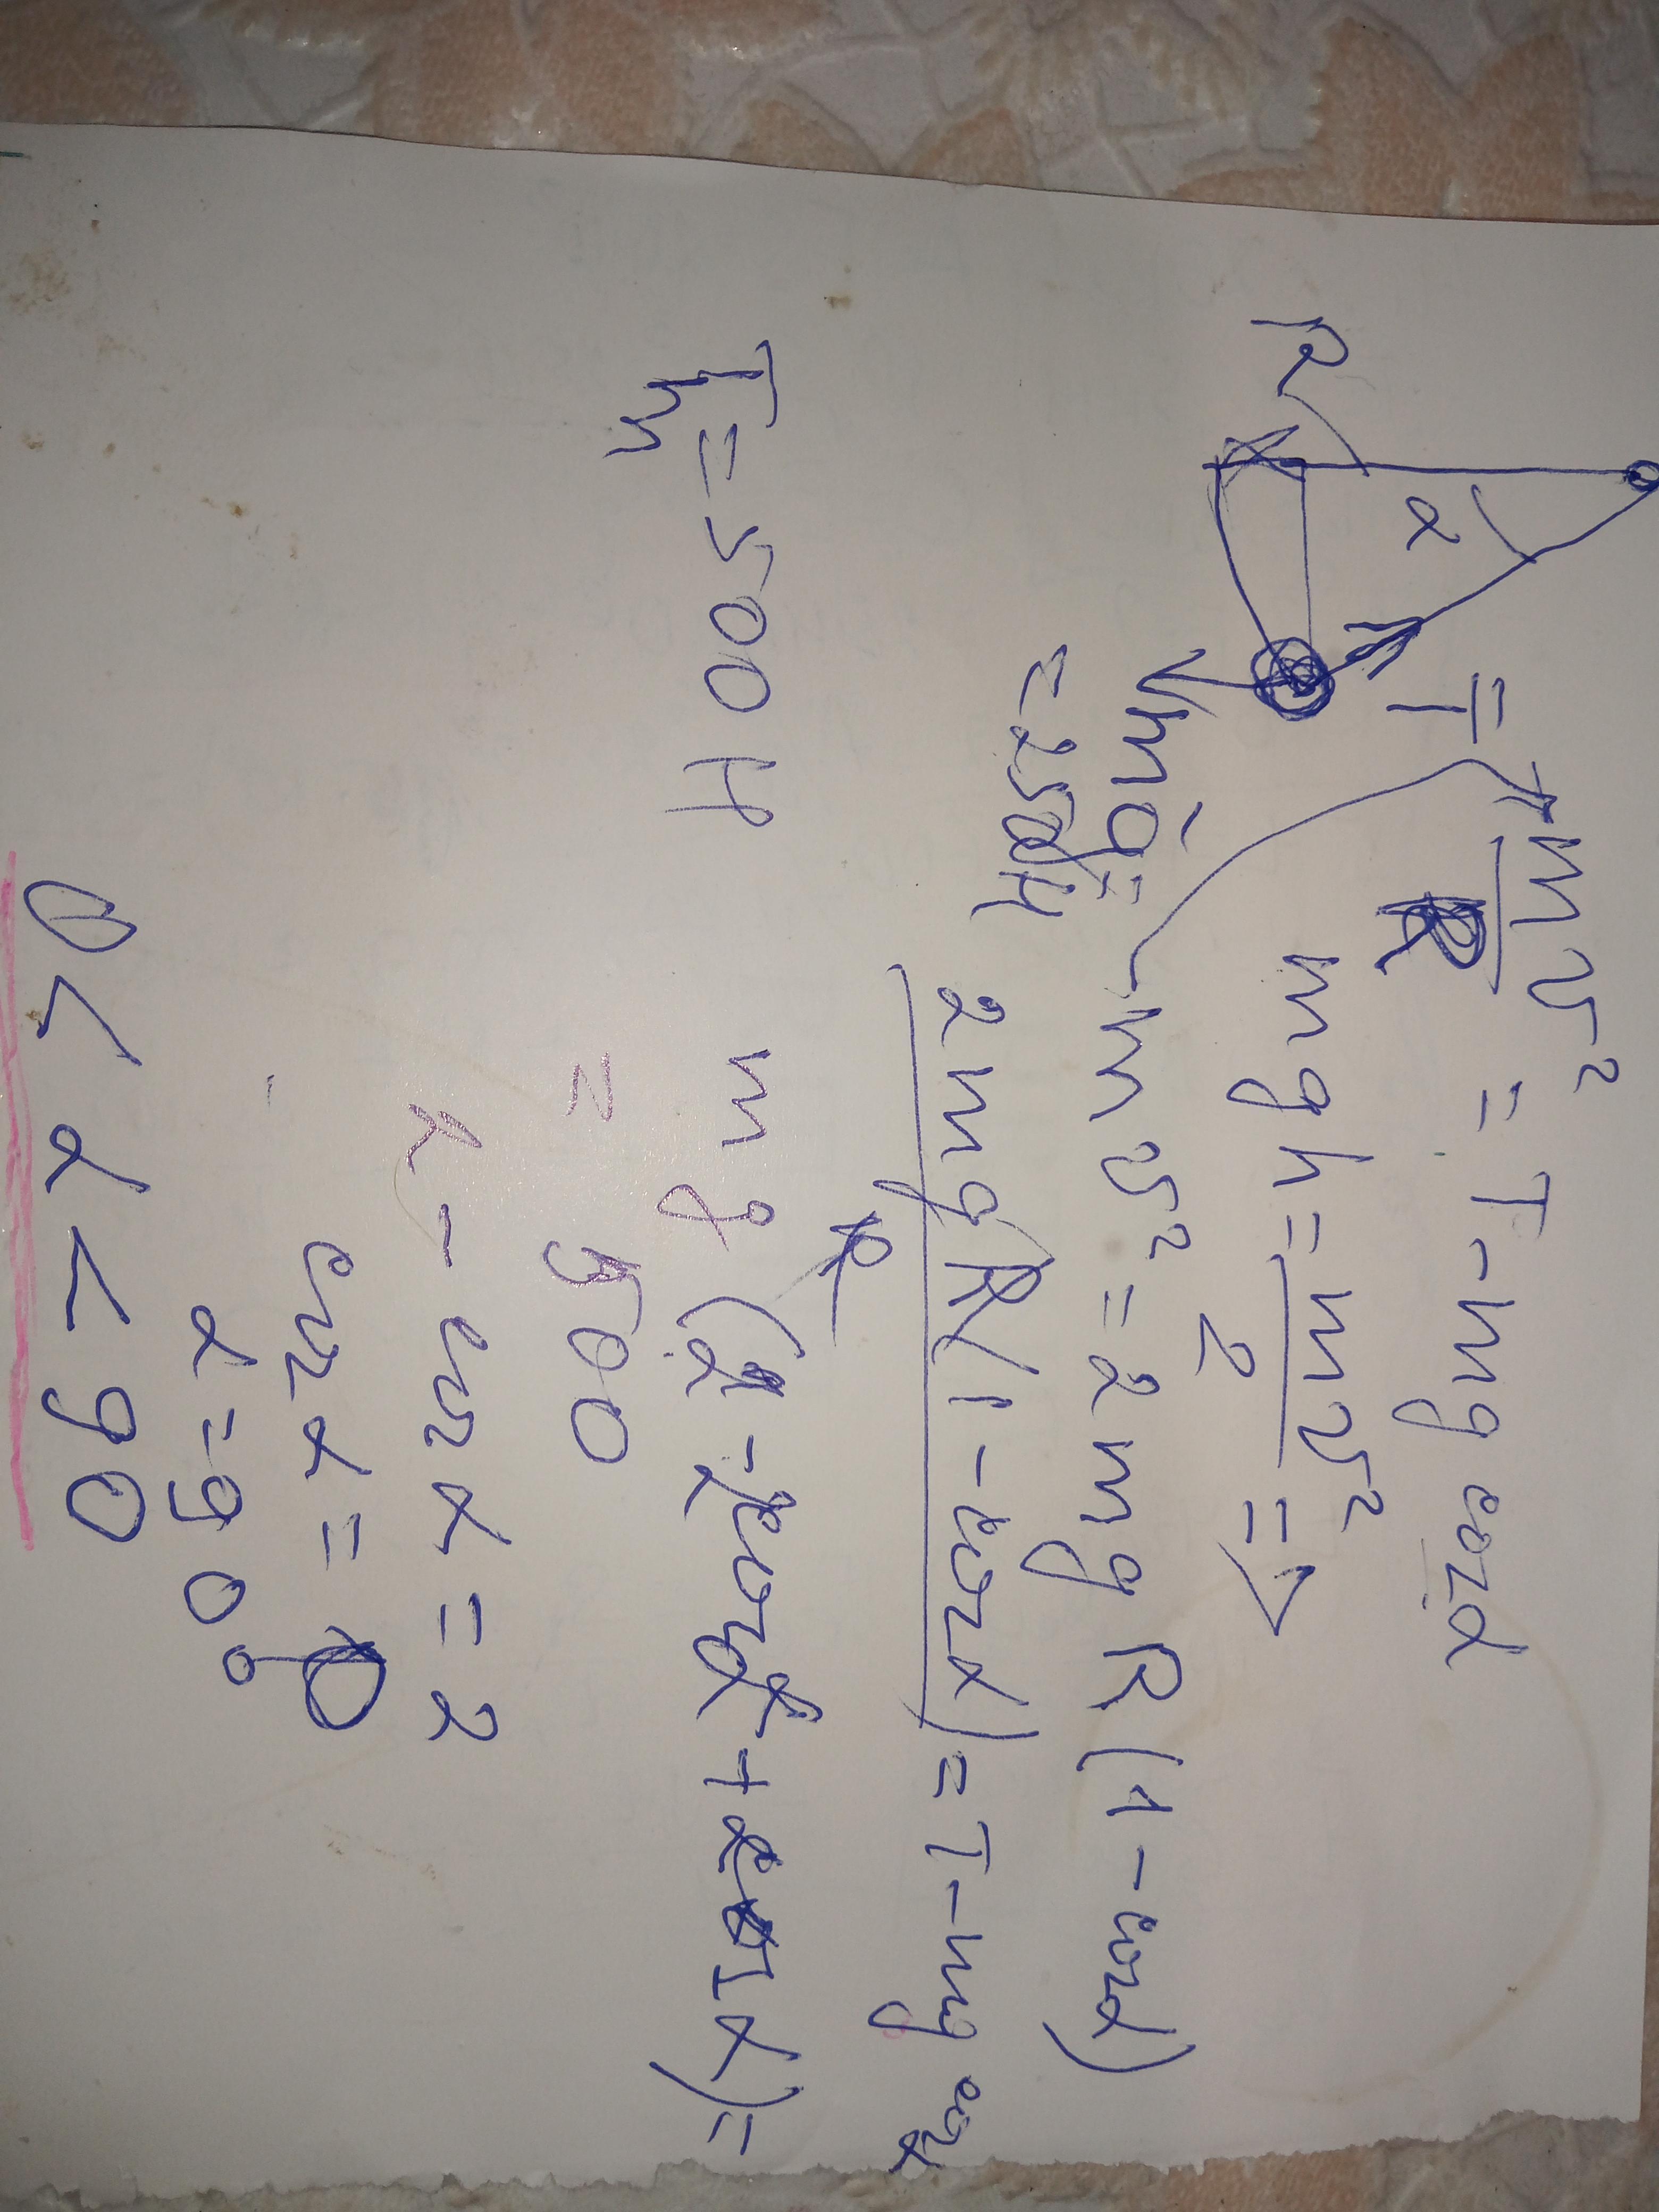 R
α
T
= mv²/R = T - mg cosα
mgh = mv²/2 =>
mg =
= 250H
mv² = 2mgR(1 - cosα)
2mgR(1 - cosα)/R = T - mg cosα
T = 500 H
mg(2 - 2cosα + cosα) =
= 500
2 - cosα = 2
cosα = 0
α = 90°
0 < α < 90